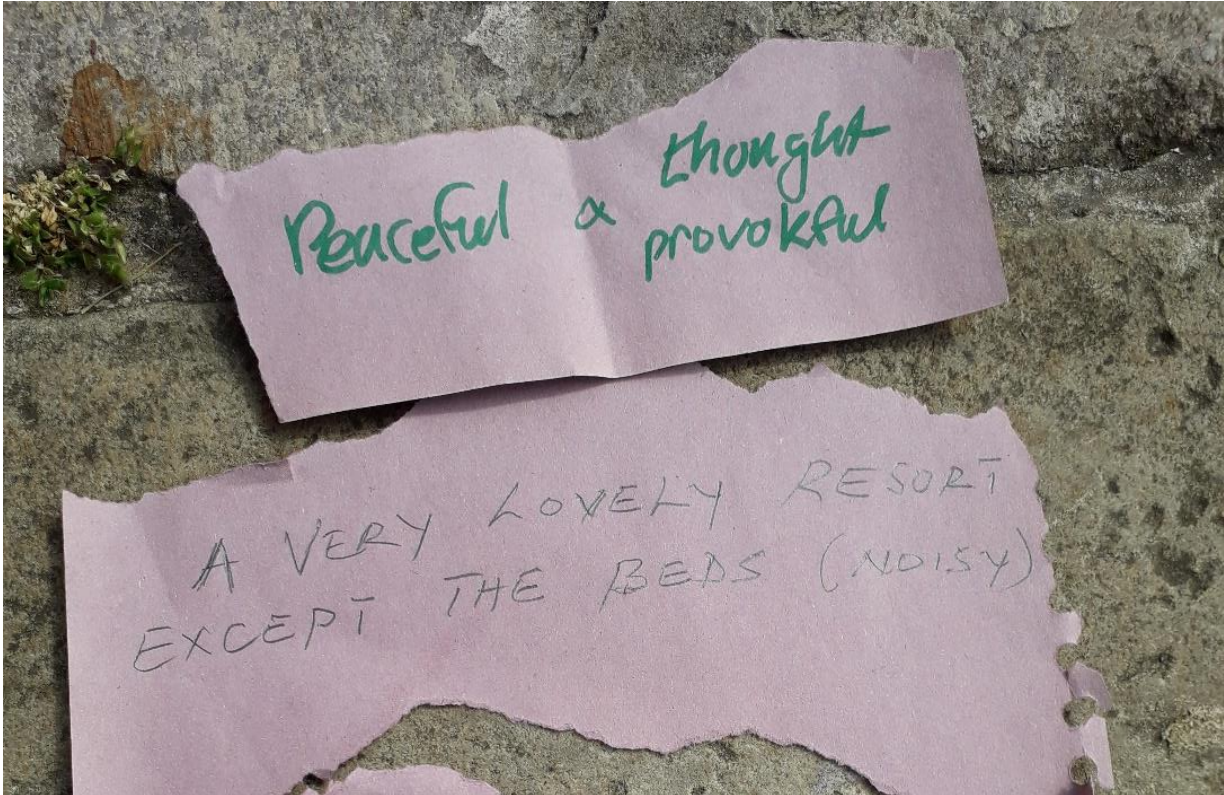 Peaceful & thought
provokful
A VERY LOVELY RESORT
EXCEPT THE BEDS (NOISY)